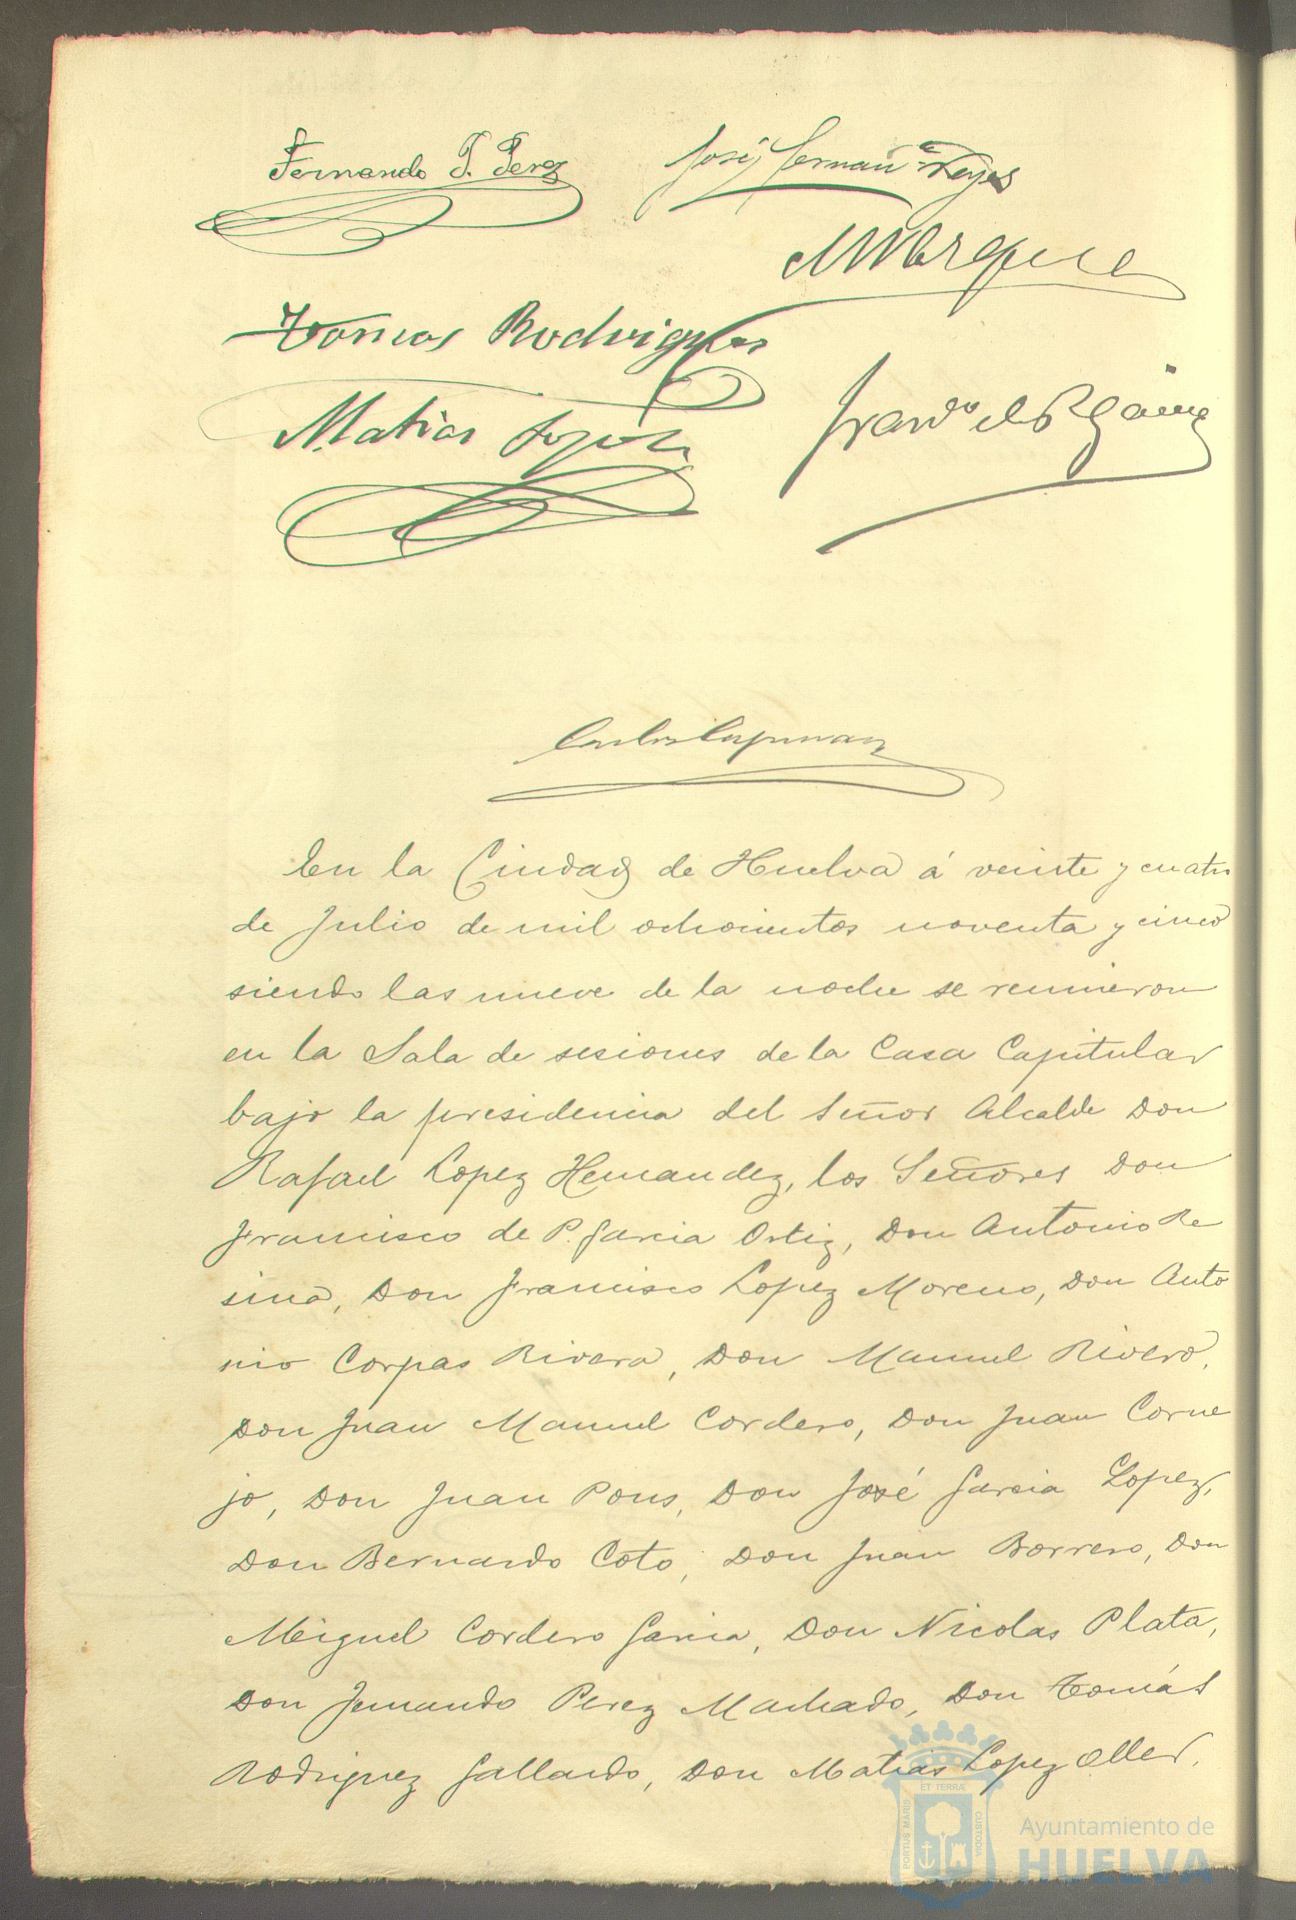 Fernando P. Perez
José Fernan Reyes
Tomas Rodriguez
Matias Lopez
En la Ciudad de Huelva á veinte y cuatro
de Julio de mil ochocientos noventa y cinco
siendo las nueve de la noche se reunieron
en la Sala de sesiones de la Casa Capitular
bajo la presidencia del Señor Alcalde Don
Rafael Lopez Hernandez, los Señores Don
Francisco de P. Garcia Ortiz, Don Antonio Re
sina, Don Francisco Lopez Moreno, Don Anto
nio Corpas Rivera, Don Manuel Rivero,
Don Juan Manuel Cordero, Don Juan Corne
jo, Don Juan Pons, Don José Garcia Lopez,
Don Bernardo Coto, Don Juan Borrero, Don
Miguel Cordero Garcia, Don Nicolas Plata,
Don Fernando Perez Machado, Don Tomás
Rodriguez Gallardo, Don Matias Lopez Oller,
ET TERRÆ
PORTUS MARIS
CUSTODIA
Ayuntamiento de
HUELVA